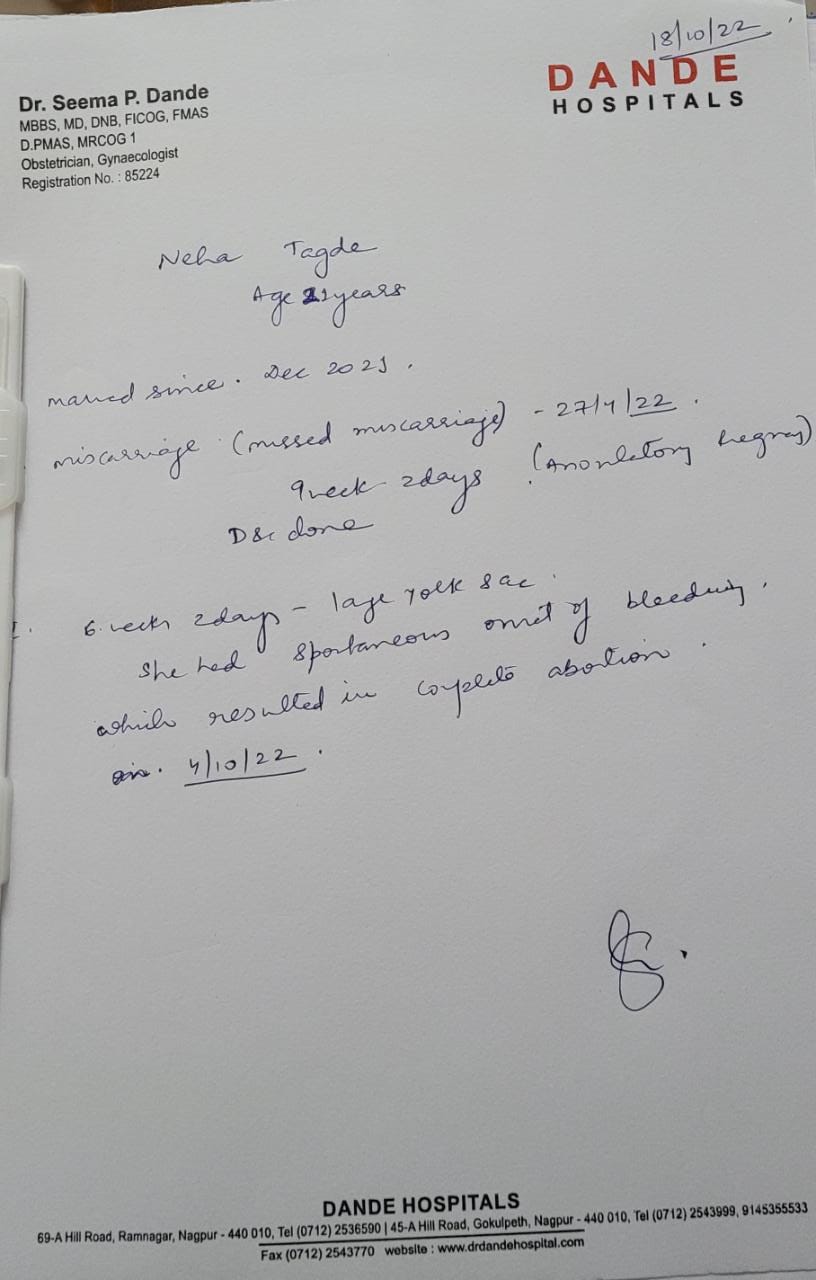 18/10/22
Dr. Seema P. Dande
MBBS, MD, DNB, FICOG, FMAS
D.PMAS, MRCOG 1
Obstetrician, Gynaecologist
Registration No. : 85224
DANDE
HOSPITALS
Neha Tagde
Age years
married since. Dec 2021.
miscarriage (missed miscarriage) - 27/4/22.
9 week 2days (Anovulatory
D&C done
6 weeks 2days - large yolk sac.
She had spontaneous onset of bleeding,
which resulted in complete abortion.
4/10/22.
DANDE HOSPITALS
69-A Hill Road, Ramnagar, Nagpur - 440 010, Tel (0712) 2536590 | 45-A Hill Road, Gokulpeth, Nagpur - 440 010, Tel (0712) 2543999, 9145355533
Fax (0712) 2543770 website : www.drdandehospital.com